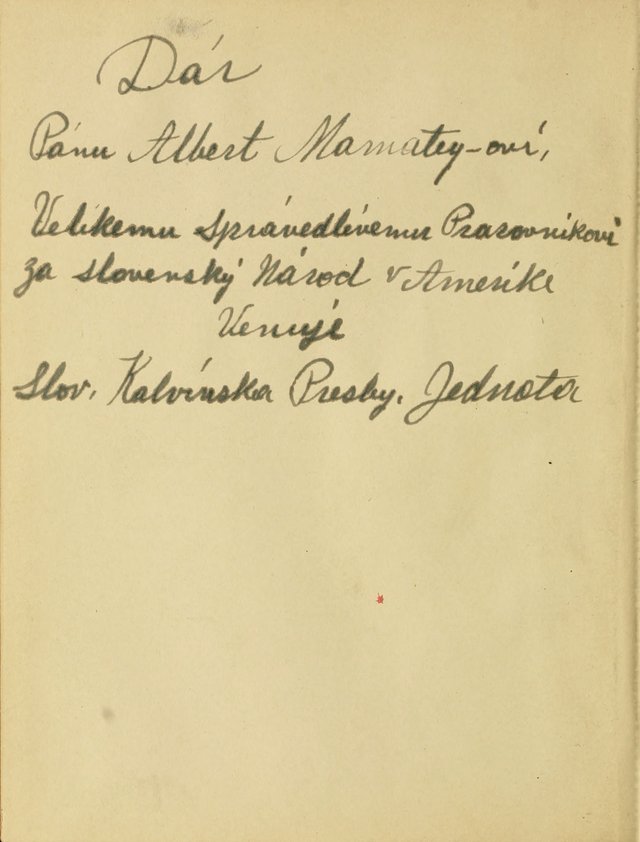 Dár
Pánu Albert Mamatey-oví,
Velikemu Správedlívemu Pracovníkoví
za slovenský Národ v Ameríke
Venujé
Slov. Kalvínska Presby. Jednota